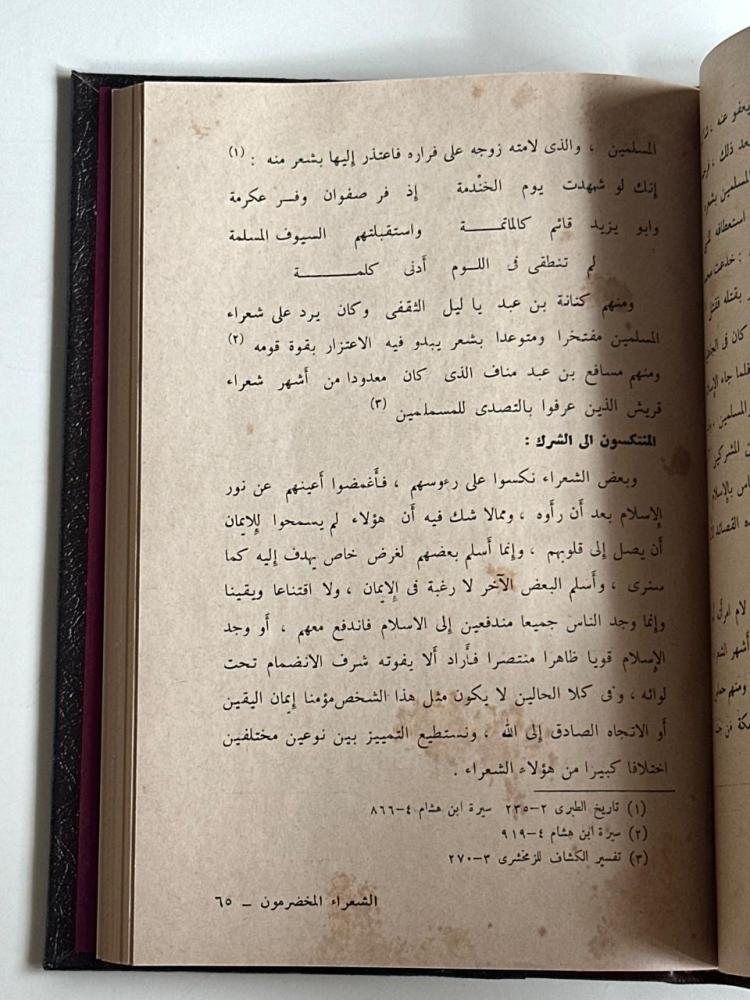 المسلمين ، والذى لامته زوجه على فراره فاعتذر إليها بشعر منه : (١)
إنك لو شهدت يوم الخندمة إذ فر صفوان وفـر عكرمة
وابو يزيد قائم كالماتمـــة واستقبلتهم السيوف المسلمة
لم تنطقى فى اللـوم أدنى كلمـــة
ومنهم كنانة بن عبد يا ليل الثقفى وكان يرد على شعراء
المسلمين مفتخرا ومتوعدا بشعر يبدو فيه الاعتزار بقوة قومه (٢)
ومنهم مسافع بن عبد مناف الذى كان معدودا من أشهر شعراء
قريش الذين عرفوا بالتصدى للمسملمين (٣)
المنتكسون الى الشرك :
وبعض الشعراء نكسوا على رءوسهم ، فأغمضوا أعينهم عن نور
الإسلام بعد أن رأوه ، ومالا شك فيه أن هؤلاء لم يسمحوا للإيمان
أن يصل إلى قلوبهم ، وإنما أسلم بعضهم لغرض خاص يهدف إليه كما
سنرى ، وأسلم البعض الآخر لا رغبة فى الإيمان ، ولا اقتناعا ويقينا
وإنما وجد الناس جميعا مندفعين إلى الاسلام فاندفع معهم ، أو وجد
الإسلام قويا ظاهرا منتصرا فأراد ألا يفوته شرف الانضمام تحت
لوائه ، وفى كلا الحالين لا يكون مثل هذا الشخص مؤمنا إيمان اليقين
أو الاتجاه الصادق إلى الله ، ونستطيع التمييز بين نوعين مختلفين
اختلافا كبيرا من هؤلاء الشعراء .
(١) تاريخ الطبرى ٢–٢٣٥ سيرة ابن هشام ٤–٨٦٦
(٢) سيرة ابن هشام ٤–٩١٩
(٣) تفسير الكشاف للزمخشرى ٣–٢٧٠
الشعراء المخضرمون – ٦٥